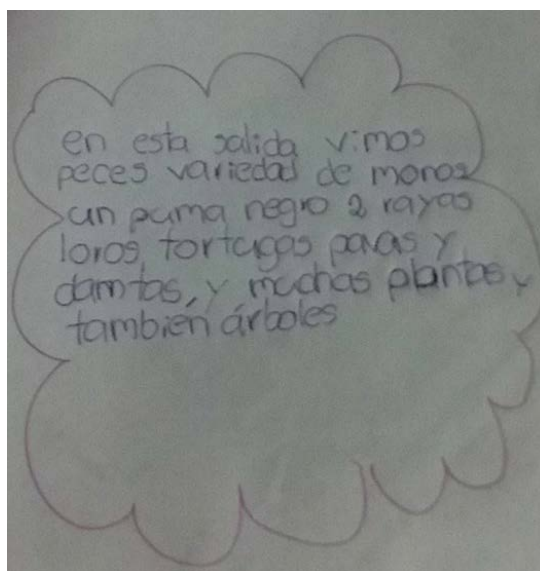 en esta salida vimos
peces variedad de monos
un puma negro 2 rayas
loros, tortugas pavas y
damtas, y muchas plantas y
tambien árboles